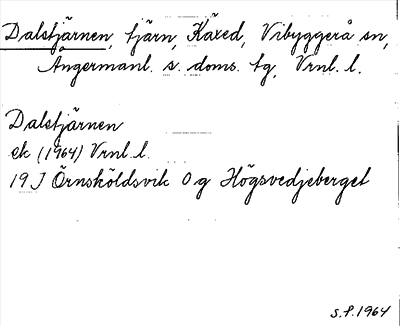 Dalstjärnen, tjärn, Käxed, Vibyggerå sn,
Ångermanl. s. doms. tg, Vrnl. l.
Dalstjärnen
ek (1964) Vrnl. l.
19 J Örnsköldsvik 0 g Högsvedjeberget
S.F. 1964